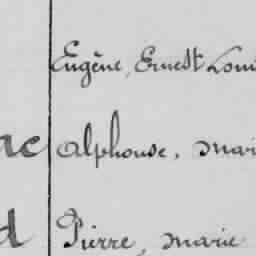 Eugène, Ernest Loui
ac Alphonse, mari
d Pierre, marie